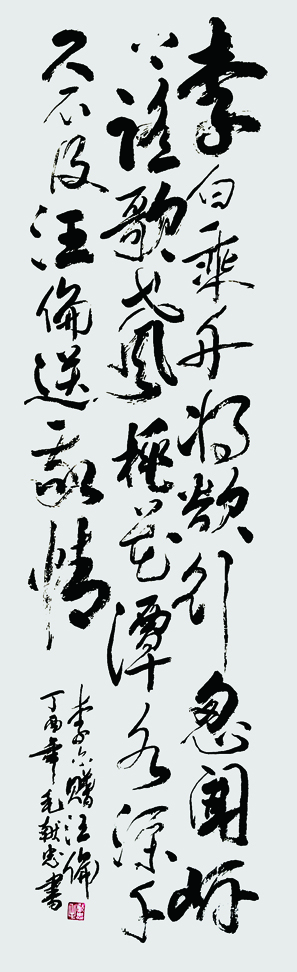 李白乘舟将欲行忽聞岸
上踏歌聲桃花潭水深千
尺不及汪倫送我情
李白贈汪倫
丁酉年毛献忠書